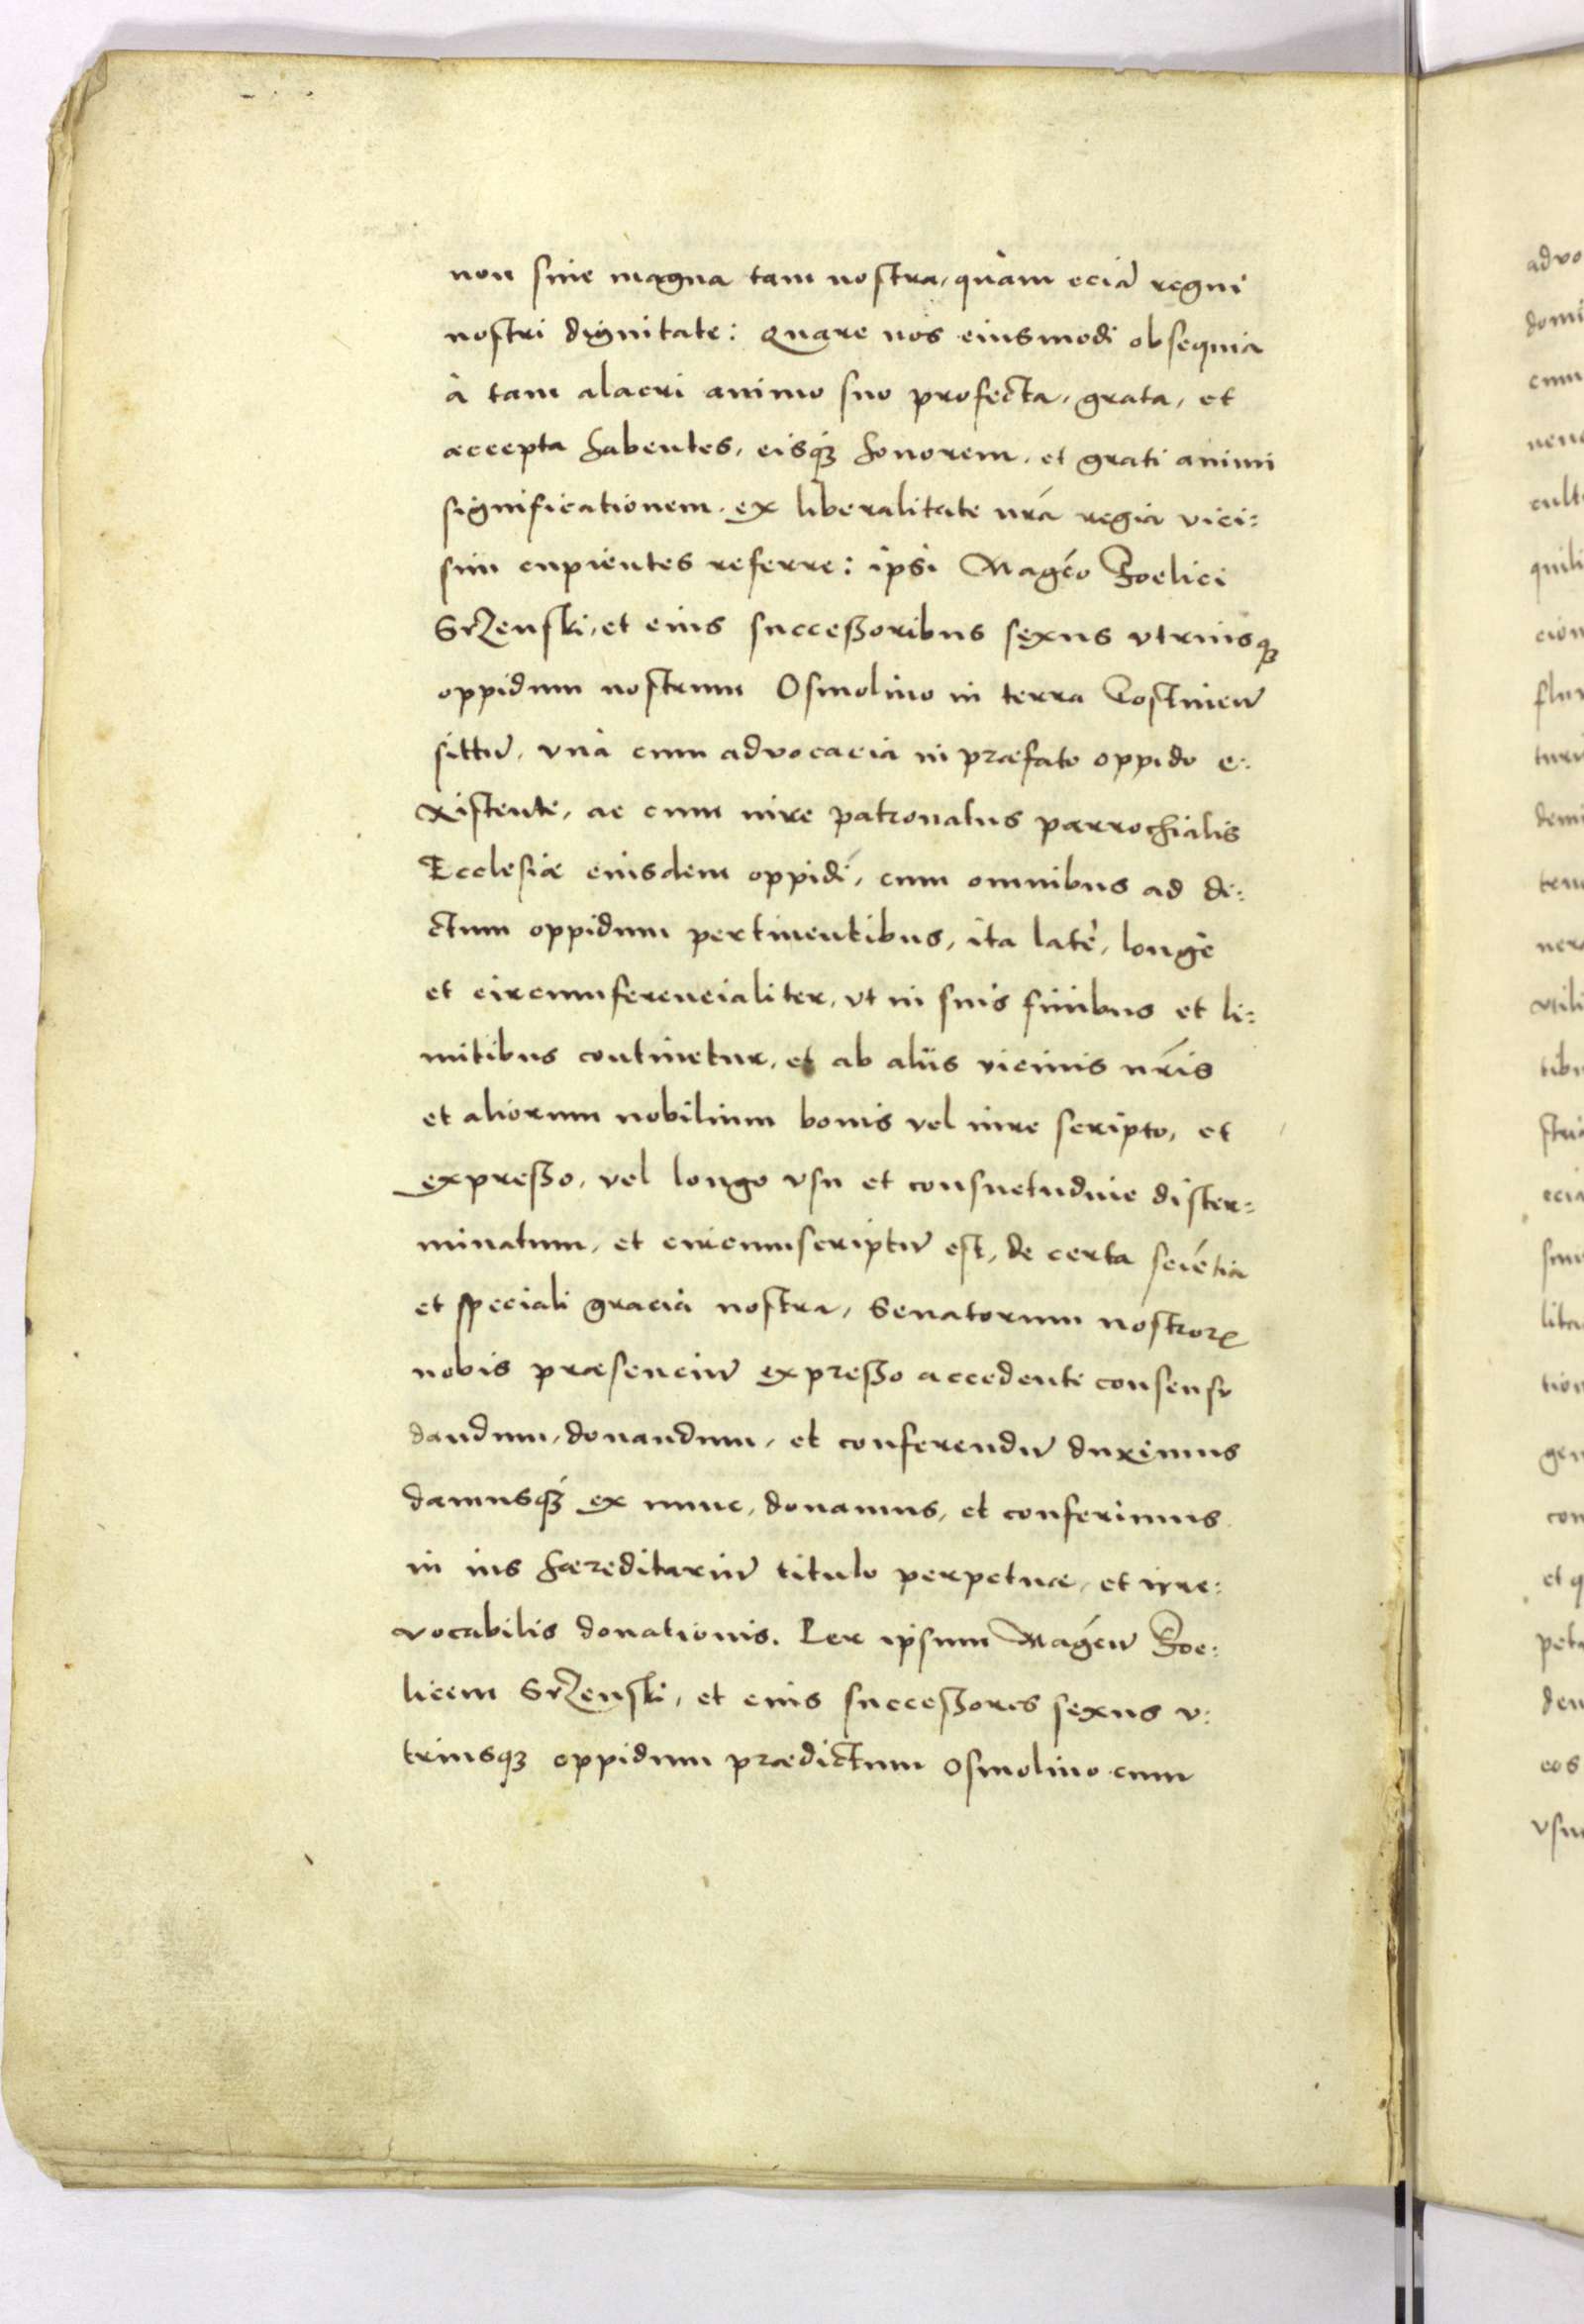 non sine magna tam nostra, quàm eciā regni
nostri dignitate: Quare nos eiusmodi obsequia
à tam alacri animo suo profecta, grata, et
accepta habentes, eisq́ꝫ honorem, et grati animi
significationem, ex liberalitate nr̃a regia vici:
sim cupientes referre: ipsi Magc̃o Foelici
Srzenski, et eius successoribus sexus vtriusqꝫ
oppidum nostrum Osmolino in terra Gostinen̄
sittū, vnà cum advocacia in præfato oppido e:
xistente, ac cum iure patronatus parrochialis
Ecclesiæ eiusdem oppidi, cum omnibus ad di:
ctum oppidum pertinentibus, ita latè, longè
et circumferencialiter, vt in suis finibus et li:
mitibus continetur, et ab aliis vicinis nr̃is
et aliorum nobilium bonis vel iure scripto, et
expresso, vel longo vsu et consuetudine dister:
minatum, et circumscriptū est, de certa sciẽtia
et speciali gracia nostra, Senatorum nostroꝝ
nobis præsenciū expresso accedente consensu
dandum, donandum, et conferendū duximus
damusq́ꝫ ex nunc, donamus, et conferimus
in ius hæreditariū titulo perpetuæ, et irre:
vocabilis donationis. Per ipsum Magc̃ū Foe:
licem Srzenski, et eius successores sexus v:
triusqꝫ oppidum prædictum Osmolino cum
advo
domi
cum